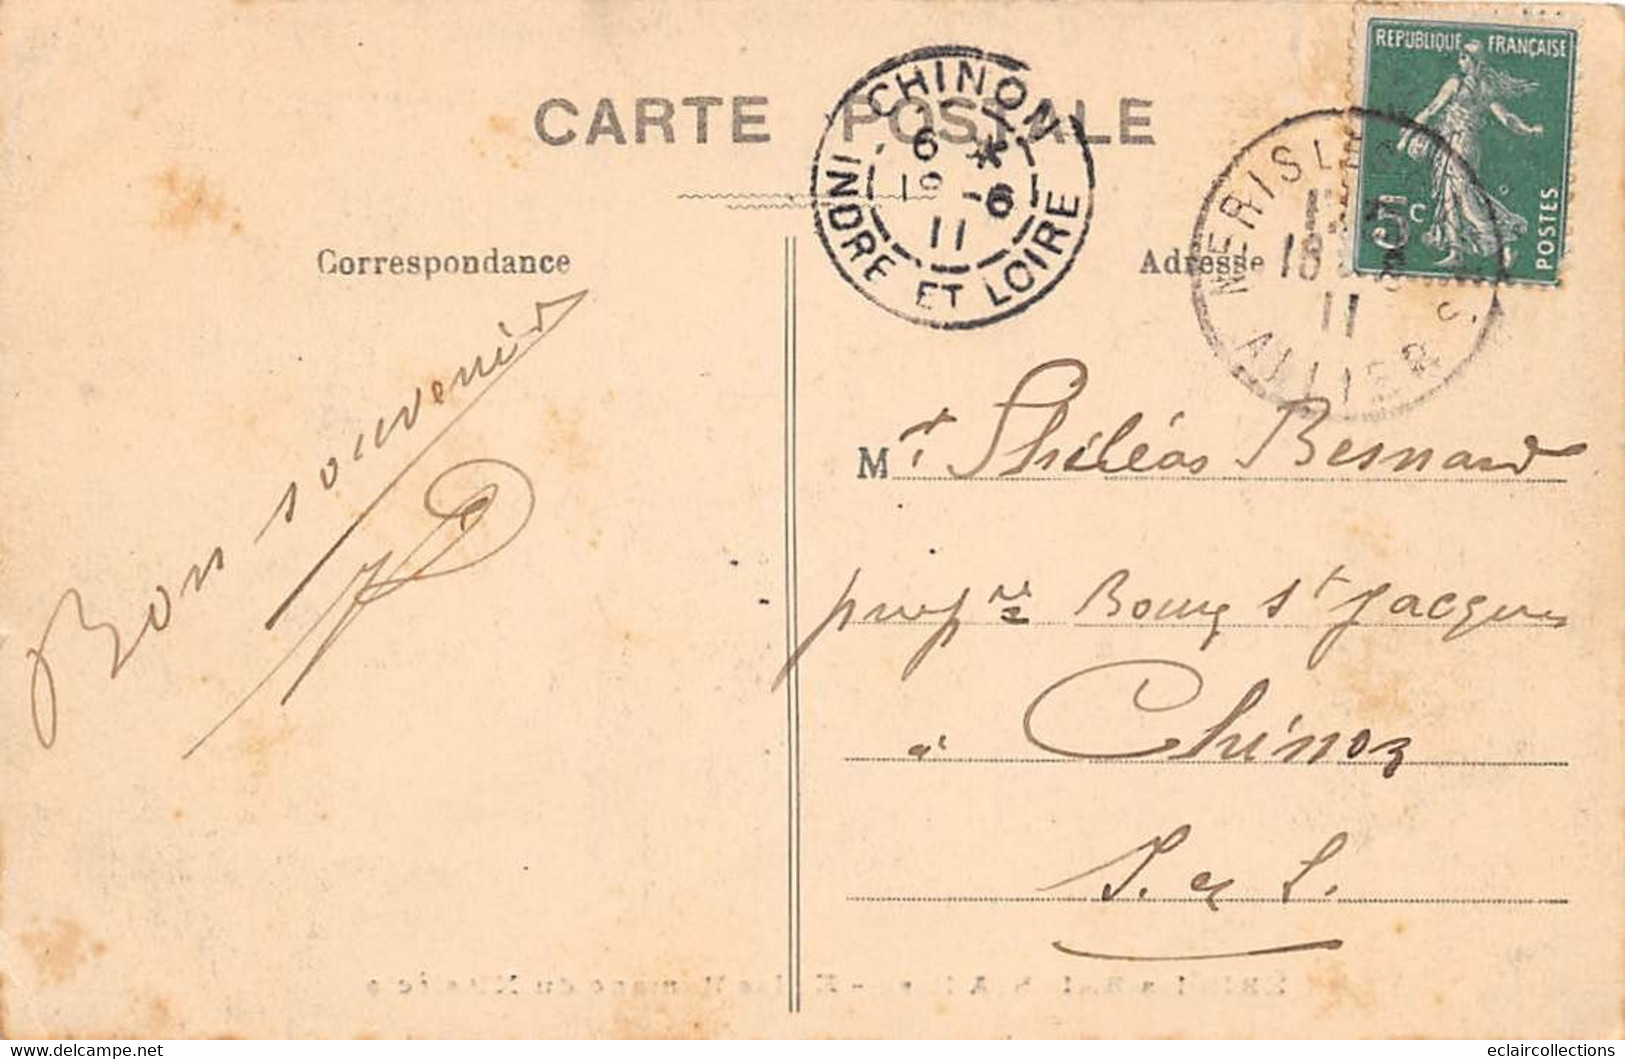 CARTE POSTALE
CHINON
6 *
18 -6
11
INDRE ET LOIRE
REPUBLIQUE FRANÇAISE
5c
POSTES
NERIS LES
18
11
ALLIER
Correspondance
Adresse
Bon souvenir
Mr Philéas Besnard
propre Bourg St Jacques
à Chinon
I. et L.
www.delcampe.net
eclaircollections